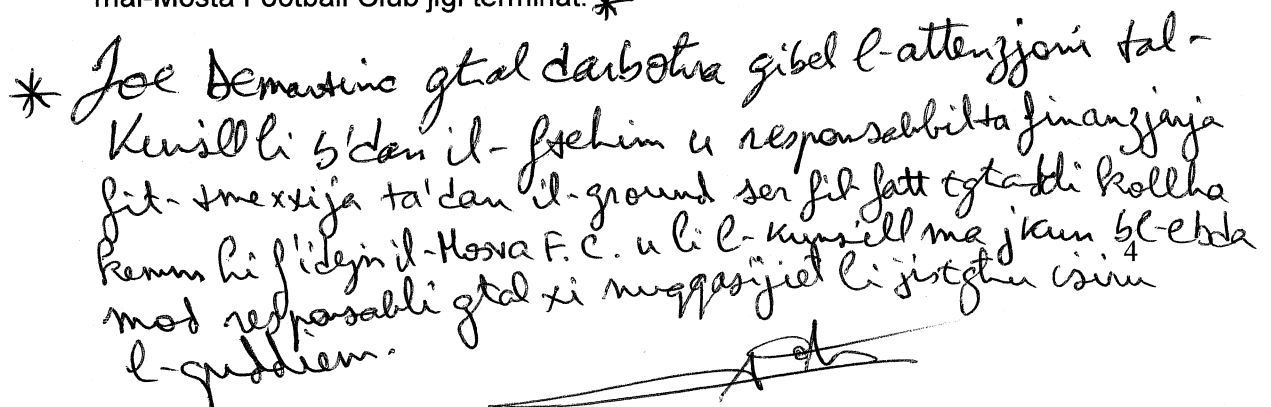 mal-Mosta Football Club jigi terminat. *
* Joe Demartino għal darboħra gibel l-attenzjoni tal-
Kunsill li b'dan il-ftehim u responsabbilta finanzjarja
fit-tmexxija ta' dan il-ground ser fil-fatt tgħaddi kollha
kemm hi f'idejn il-Mosta F.C. u li l-kunsill ma jkun bl-ebda
4
mod responsabli għal xi nuqqasijiet li jistgħu isiru
l-quddiem.